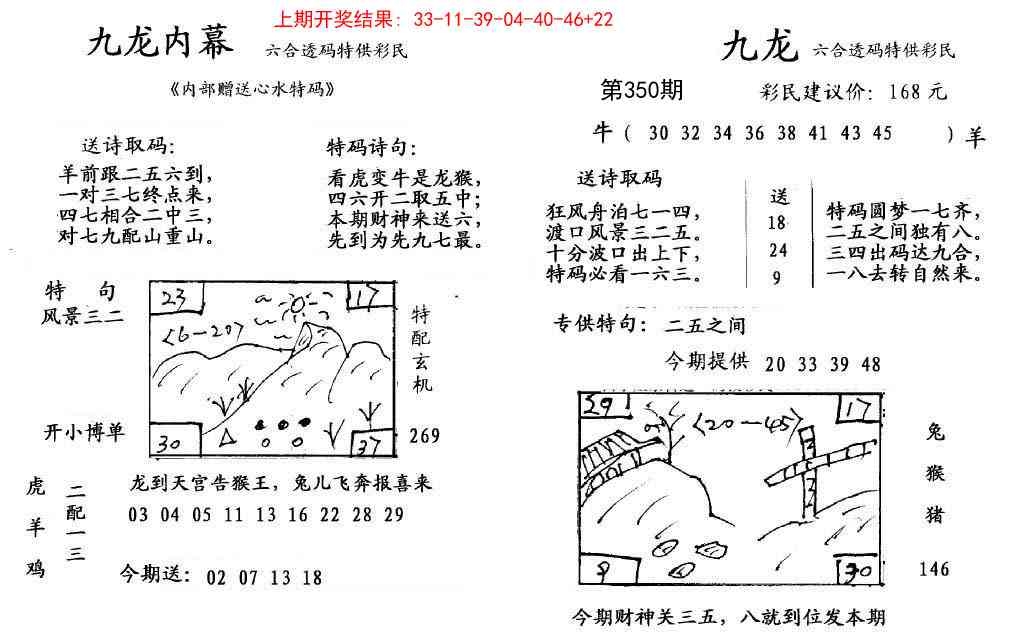 上期开奖结果: 33-11-39-04-40-46+22
九龙内幕 六合透码特供彩民
《内部赠送心水特码》
送诗取码:
羊前跟二五六到，
一对三七终点来，
四七相合二中三，
对七九配山重山。
特码诗句:
看虎变牛是龙猴，
四六开二取五中；
本期财神来送六，
先到为先九七最。
特句
风景三二
开小博单
23
17
<6-20>
30
37
特配玄机
269
虎羊鸡
二配一三
龙到天宫告猴王，兔儿飞奔报喜来
03 04 05 11 13 16 22 28 29
今期送: 02 07 13 18
九龙 六合透码特供彩民
第350期 彩民建议价: 168元
牛( 30 32 34 36 38 41 43 45 )羊
送诗取码
狂风舟泊七一四，
渡口风景三二五。
十分波口出上下，
特码必看一六三。
送
18
24
9
特码圆梦一七齐，
二五之间独有八。
三四出码达九合，
一八去转自然来。
专供特句: 二五之间
今期提供 20 33 39 48
29
17
<20-45>
9
30
兔
猴
猪
146
今期财神关三五，八就到位发本期